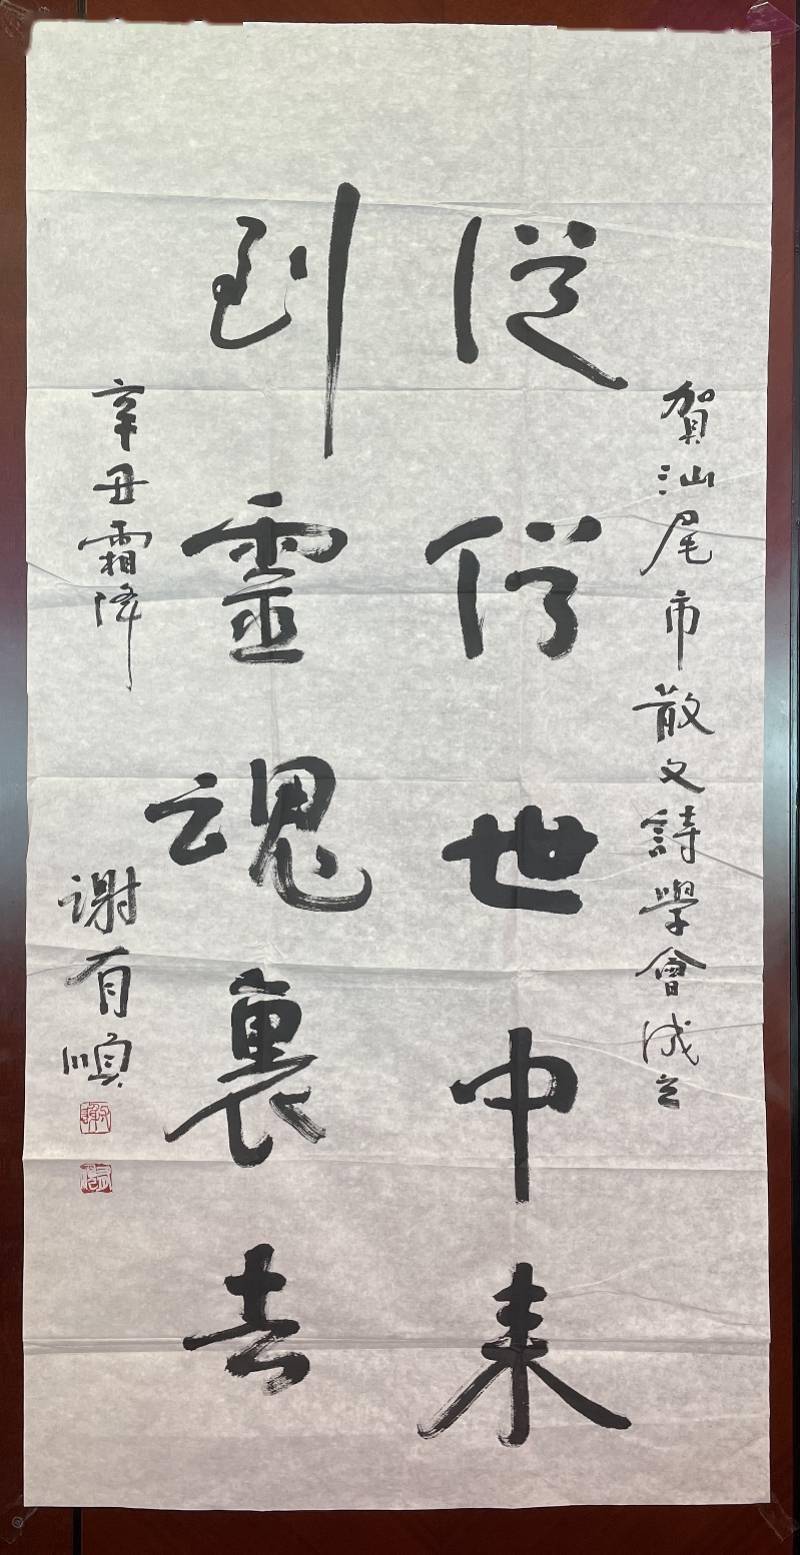 賀汕尾市散文詩學會成立
從俗世中来
到靈魂裏去
辛丑霜降
谢有順